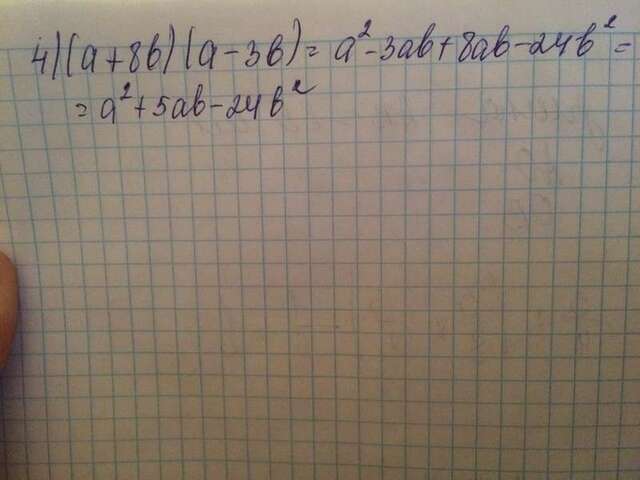 4) (a+8b)(a-3b) = a²-3ab+8ab-24b² =
= a²+5ab-24b²